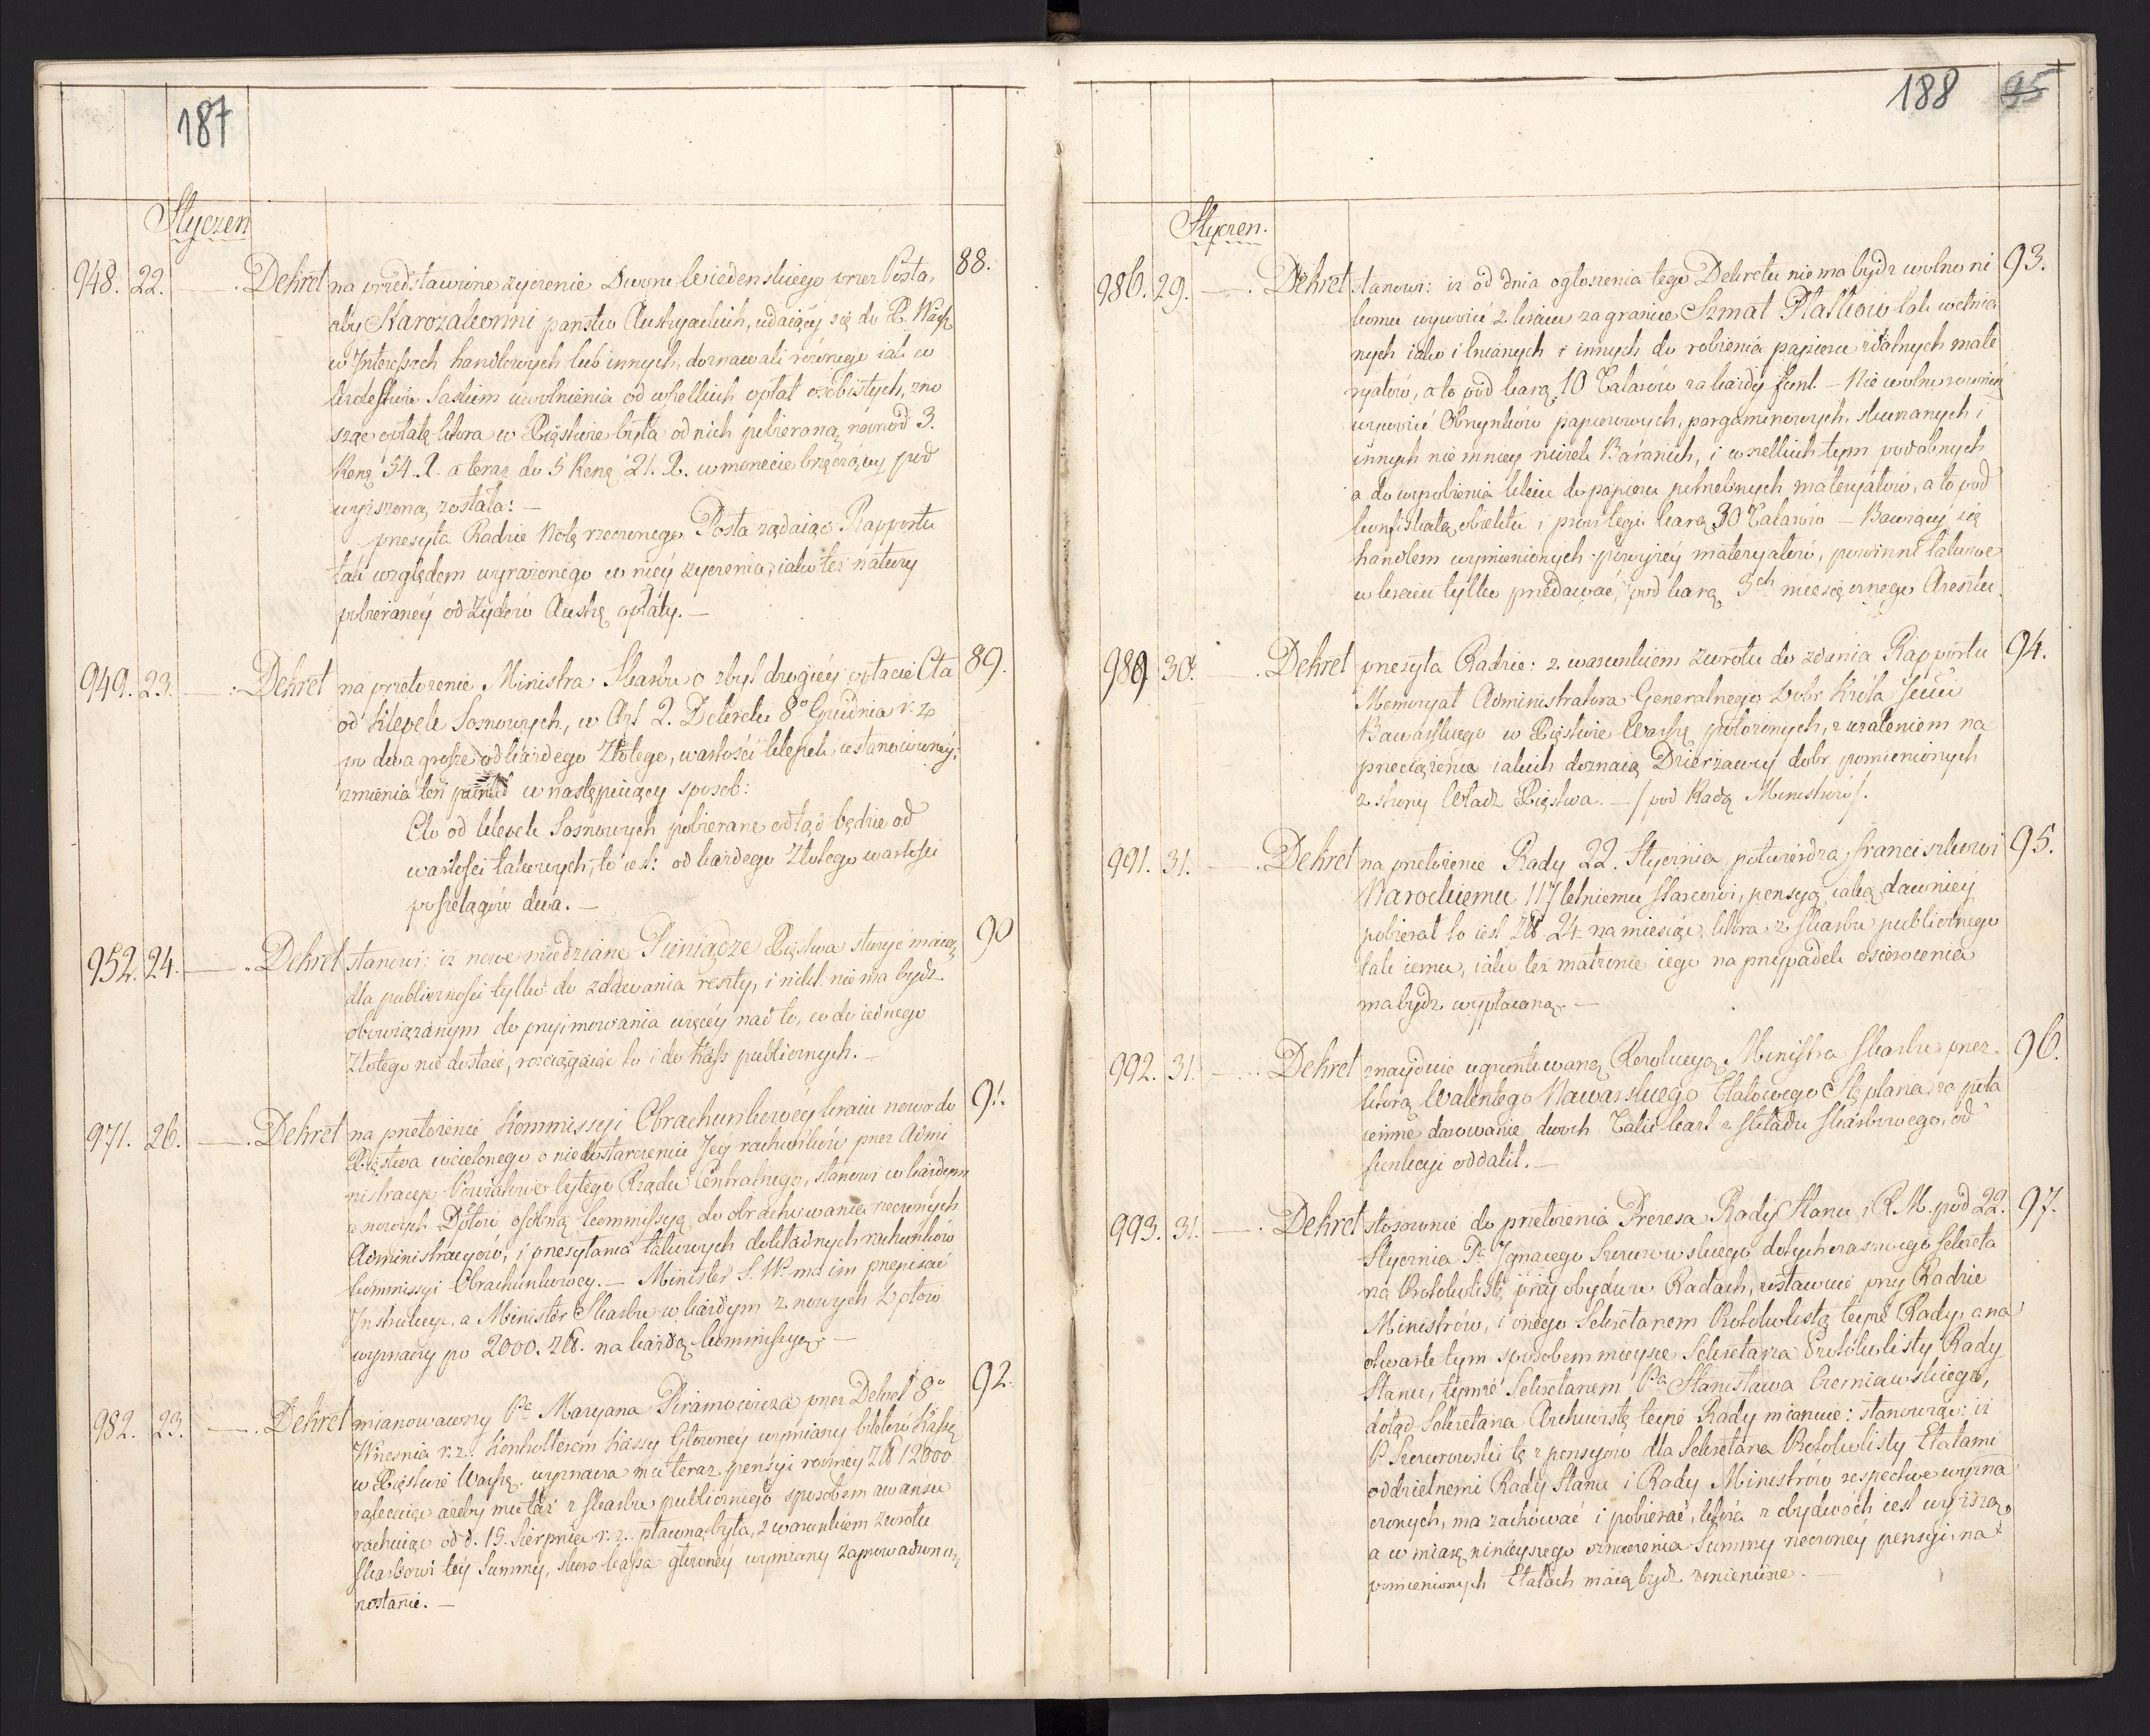 187
Styczen
948. 22. — Dekret na przedstawione życzenie Dworu Wiedenskiego przez Posta, 88.
aby Starozakonni państw Austryackich, udaiący się do X. Warsz.
w Interessach handlowych lub innych, doznawali równego iak w
Krolestwie Saskim uwolnienia od wszelkich opłat osobistych, zno
sząc opłatę która w Xięstwie była od nich pobieraną naprzód 3.
Reną 54. X. a teraz do 5 Reną 21. X. w monecie brzęczącey pod
wyższoną została: —
przesyła Radzie Notę rzeczonego Posła żądaiąc Rapportu
tak względem wyrażonego w niéy życzenia, iako też natury
pobieraney od Żydów Austr. opłaty. —
949. 23. — Dekret na przełożenie Ministra Skarbu o zbyt drogiéy opłacie Cła 89.
od Klepek Sosnowych, w Art 2. Dekretu 8° Grudnia r. z.
po dwa grosze od każdego Złotego, wartości klepek ustanowionéy:
zmienia ten w następuiący sposob:
Cło od klepek Sosnowych pobierane odtąd będzie od
wartości takowych, to iest: od każdego Złotego wartości
po szelągów dwa. —
952. 24. — Dekret stanowi: iż nowe miedziane Pieniądze Xięstwa służyć maią 90
dla publiczności tylko do zdawania reszty, i nikt nie ma bydz
obowiązanym do przyimowania więcéy nad to, co do iednego
Złotego nie dostaie, rozciągaiąc to i do Kass publicznych. —
971. 26. — Dekret na przełożenie Kommissyi Obrachunkowéy kraiu nowo do 91.
Xięstwa wcielonego o niedostarczeniu Jey rachunków przez Admi
nistracye Powiatowe byłego Rządu Centralnego, stanowi w każdym
z nowych Dptów osóbną kommissyą do obrachowania rzeczonych
Administracyów, i przesyłania takowych dokładnych rachunków
kommissyi Obrachunkowey. — Minister S. W. ma im przepisać
Instrukcye, a Minister Skarbu w każdym z nowych Dptów
wyznaczy po 2000. złł. na każdą kommissyę. —
982. 23. — Dekret mianowawszy Pa Maryana Piramowicza przez Dekret 8° 92.
Września r. z. Kontrollerem Kassy Głowney wymiany biletów Kass.
w Xięstwie Warsz. wyznacza mu teraz pensyi roczney złł 12000.
zalecaiąc ażeby mu taż z skarbu publicznego sposobem awansu
rachuiąc od d. 15. Sierpnia r. z. płaconą była, z warunkiem zwrotu
skarbowi téy Summy, skoro kassa główney wymiany zaprowadzoną
zostanie. —
188 95
Styczen.
986. 29. — Dekret stanowi: iż od dnia ogłoszenia tego Dekretu nie ma bydz wolno ni 93.
komu wywozić z kraiu za granice Szmat Płatków tak wełnia
nych iako i lnianych i innych do robienia papieru zdatnych mate
ryałów, a to pod karą 10 Talarów za każdy funt. — Nie wolno równiez
wywozić Obrzynków papierowych, pargaminowych, skurzanych i
innych nie mniey nużek Baranich, i wszelkich tym podobnych
a do wyrobienia kleiu do papieru potrzebnych materyałów, a to pod
konfiskatą obiektu i prócz tego karą 30 Talarów — Bawiący się
handlem wymienionych powyżéy materyałów, powinni takowe
w kraiu tylko przedawać, pod karą 3ch miesięcznego Aresztu.
989 30. — Dekret przesyła Radzie: z warunkiem zwrotu do zdania Rapportu 94.
Memoryał Administratora Generalnego Dobr Króla Jmci
Bawarskiego w Xięstwie Warsz. położonych, z użaleniem na
przeciążenia iakich doznaią Dzierżawcy dobr pomienionych
z strony Władz Xięstwa. — / pod Radą Ministrów /.
991. 31. — Dekret na przełożenie Rady 22. Stycznia potwierdza Franciszkowi 95.
Narockiemu 117 letniemu starcowi, pensyą iaką dawniéy
pobierał to iest Złł 24. na miesiąc, która z skarbu publicznego
tak iemu, iako też małżonce iego na przypadek osierocenia
ma bydz wypłacaną. —
992. 31. — Dekret znayduie ugruntowaną Rezolucyą Ministra Skarbu, przez 96.
którą Walentego Nawarskiego Etatowego Stęplarza za prze
ienne darowanie dwoch Talii kart z składu skarbowego, od
funkcyi oddalił. —
993. 31. — Dekret stosownie do przełożenia Prezesa Rady Stanu i R. M. pod 22. 97.
Stycznia Pa Ignacego Szczurowskiego dotychczasowego Sekreta
rza Protokolistę przy obydwu Radach, zostawuie przy Radzie
Ministrów, i onego Sekretarzem Protokolistą teyże Rady, a na
otwarte tym sposobem mieysce Sekretarza Protokolisty Rady
Stanu, tymże Sekretarzem Pa Stanisława Czerniawskiego,
dotąd Sekretarza Archiwistę teyże Rady mianuie: stanowiąc: iż
P. Szczurowski tę z pensyów dla Sekretarza Protokolisty Etatami
oddzielnemi Rady Stanu i Rady Ministrów respective wyzna
czonych, ma zachować i pobierać, która z obydwóch iest wyższą,
a w miarę ninieyszego oznaczenia Summy rzeczoney pensyi na
pomienionych Etatach maią bydz zmienione. —